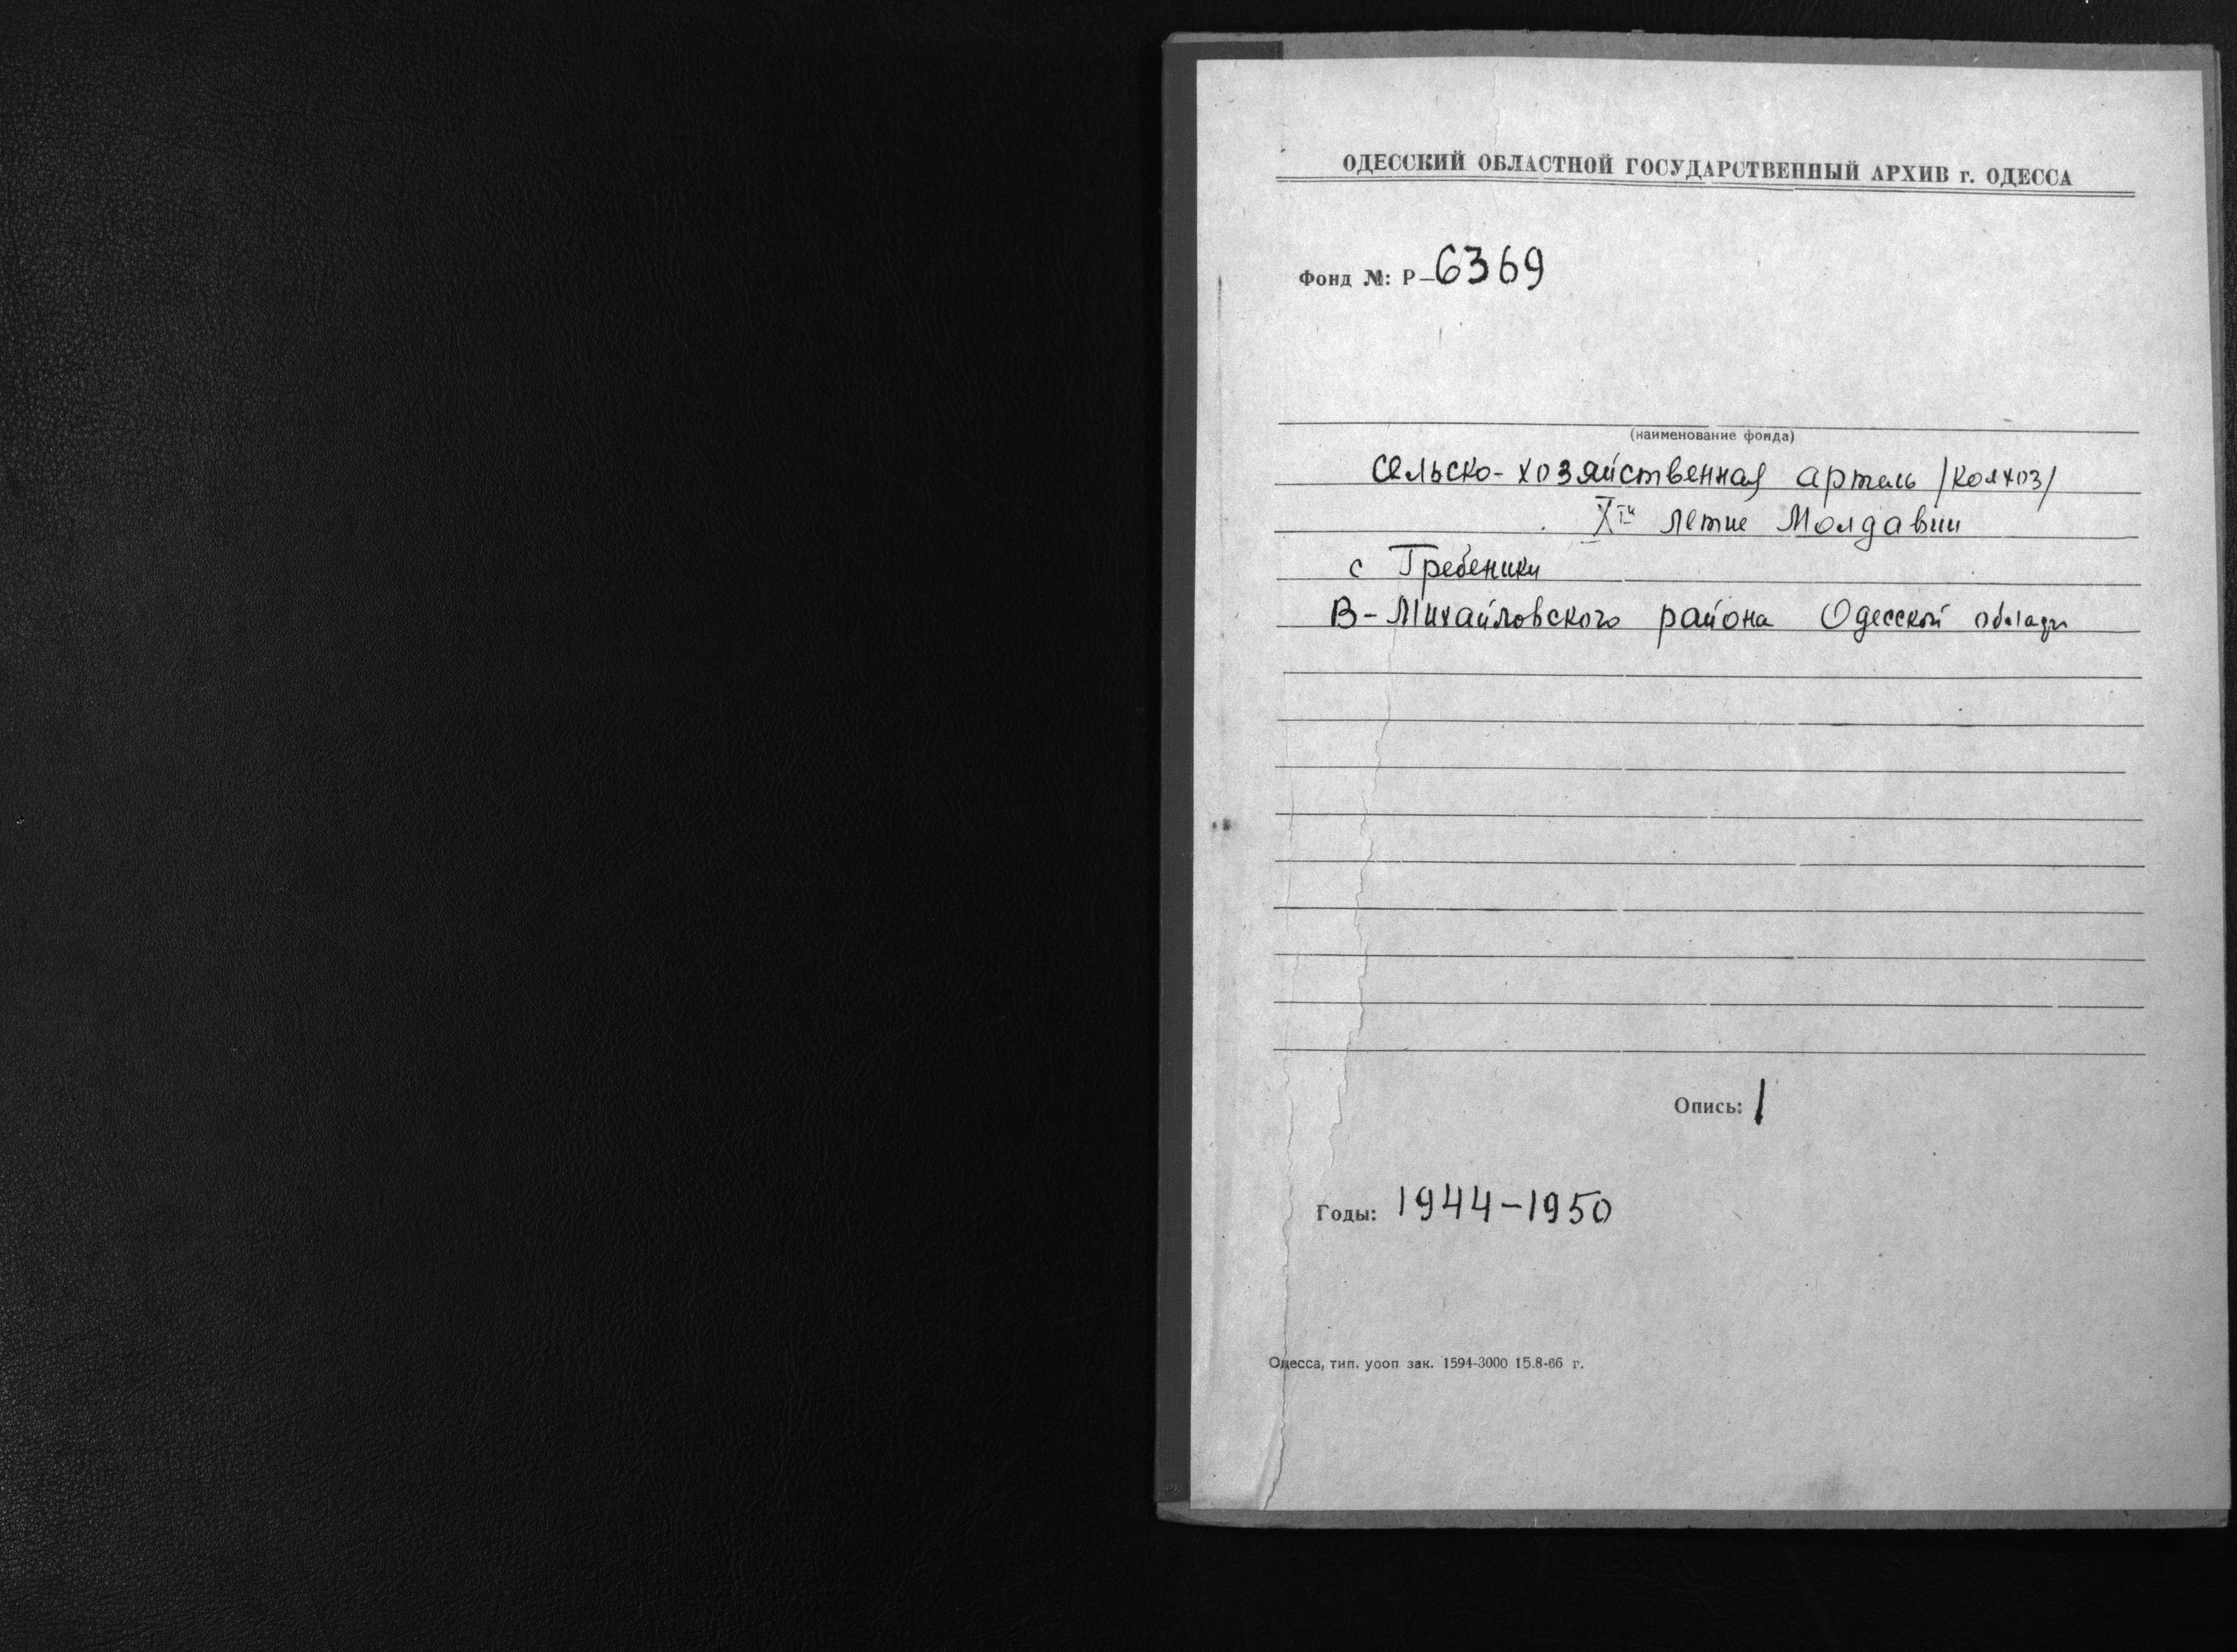 ОДЕССКИЙ ОБЛАСТНОЙ ГОСУДАРСТВЕННЫЙ АРХИВ г. ОДЕССА
Фонд №: Р-6369
(наименование фонда)
Сельско-хозяйственная артель /колхоз/
летие Молдавии
с Гребеники
В-Михайловского района Одесской
Опись: 1
Годы: 1944-1950
Одесса, тип. уооп зак. 1594-3000 15.8-66 г.